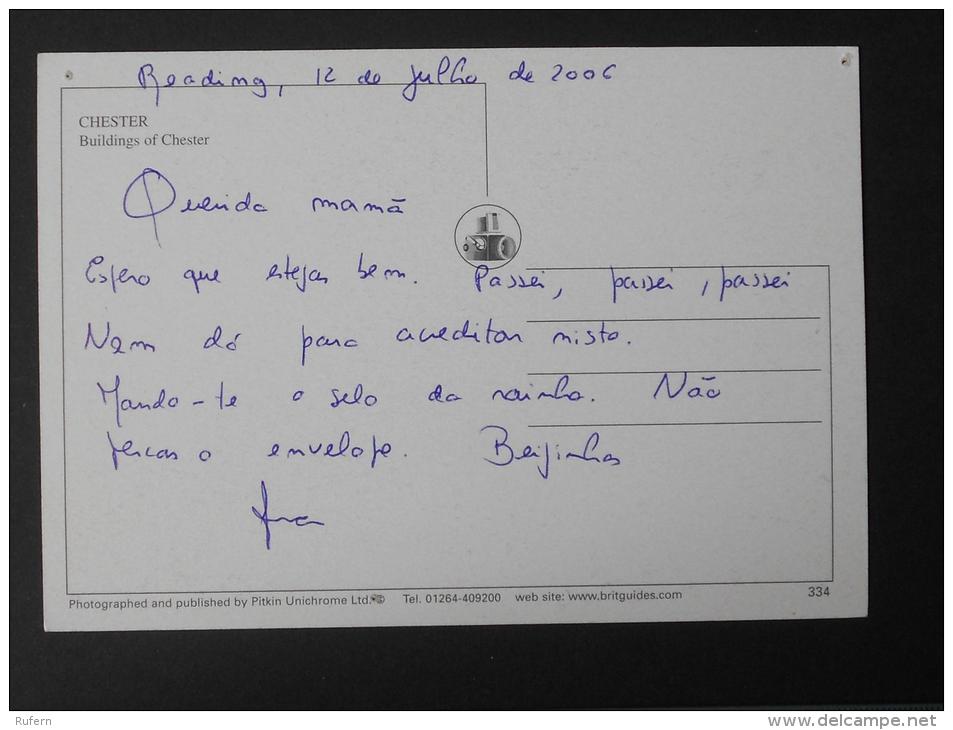 Reading, 12 de Julho de 2006
CHESTER
Buildings of Chester
Querida mamã
Espero que estejas bem. Passei, passei, passei
Nem dá para acreditar nisto.
Mando-te o selo da rainha. Não
percas o envelope. Beijinhos
Photographed and published by Pitkin Unichrome Ltd. © Tel. 01264-409200 web site: www.britguides.com 334
Rufern
www.delcampe.net